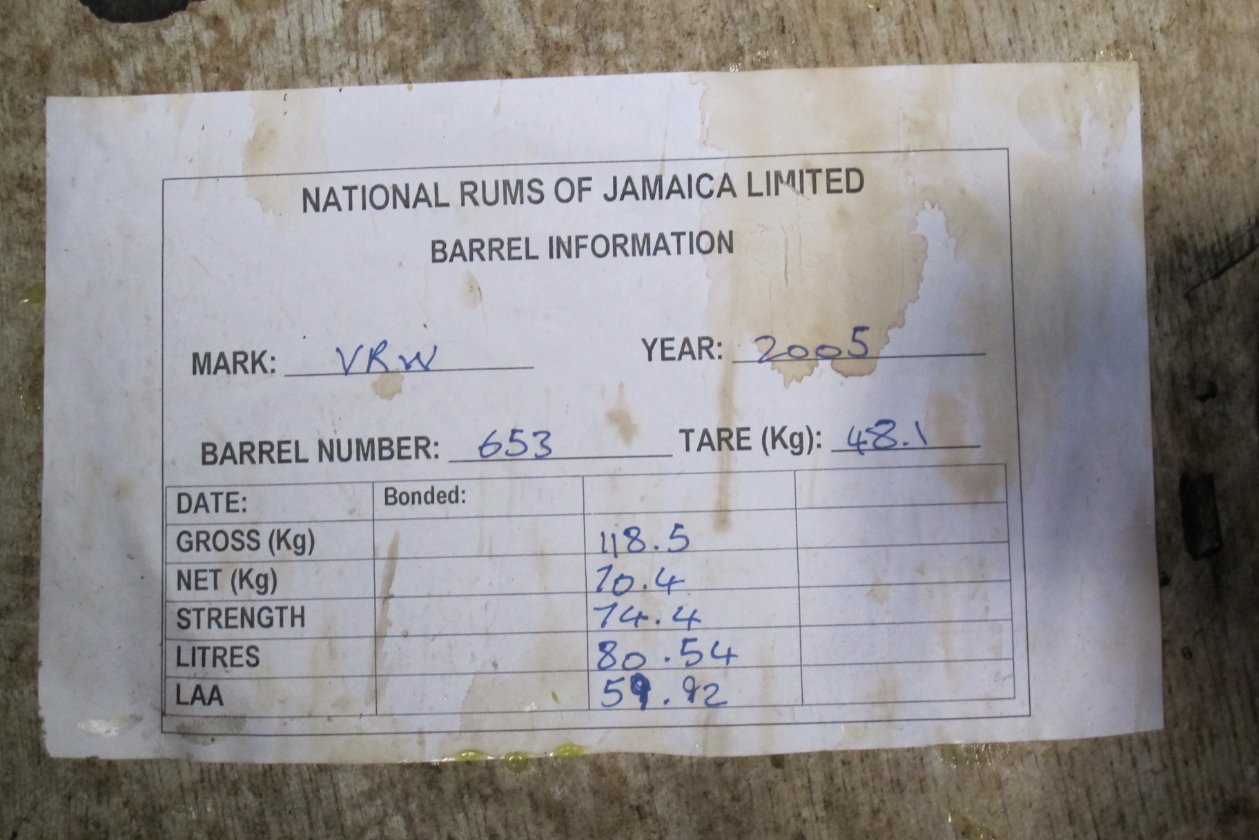 NATIONAL RUMS OF JAMAICA LIMITED
BARREL INFORMATION
MARK: VRW YEAR: 2005
BARREL NUMBER: 653 TARE (Kg): 48.1
DATE: Bonded:
GROSS (Kg) 118.5
NET (Kg) 70.4
STRENGTH 74.4
LITRES 80.54
LAA 59.92